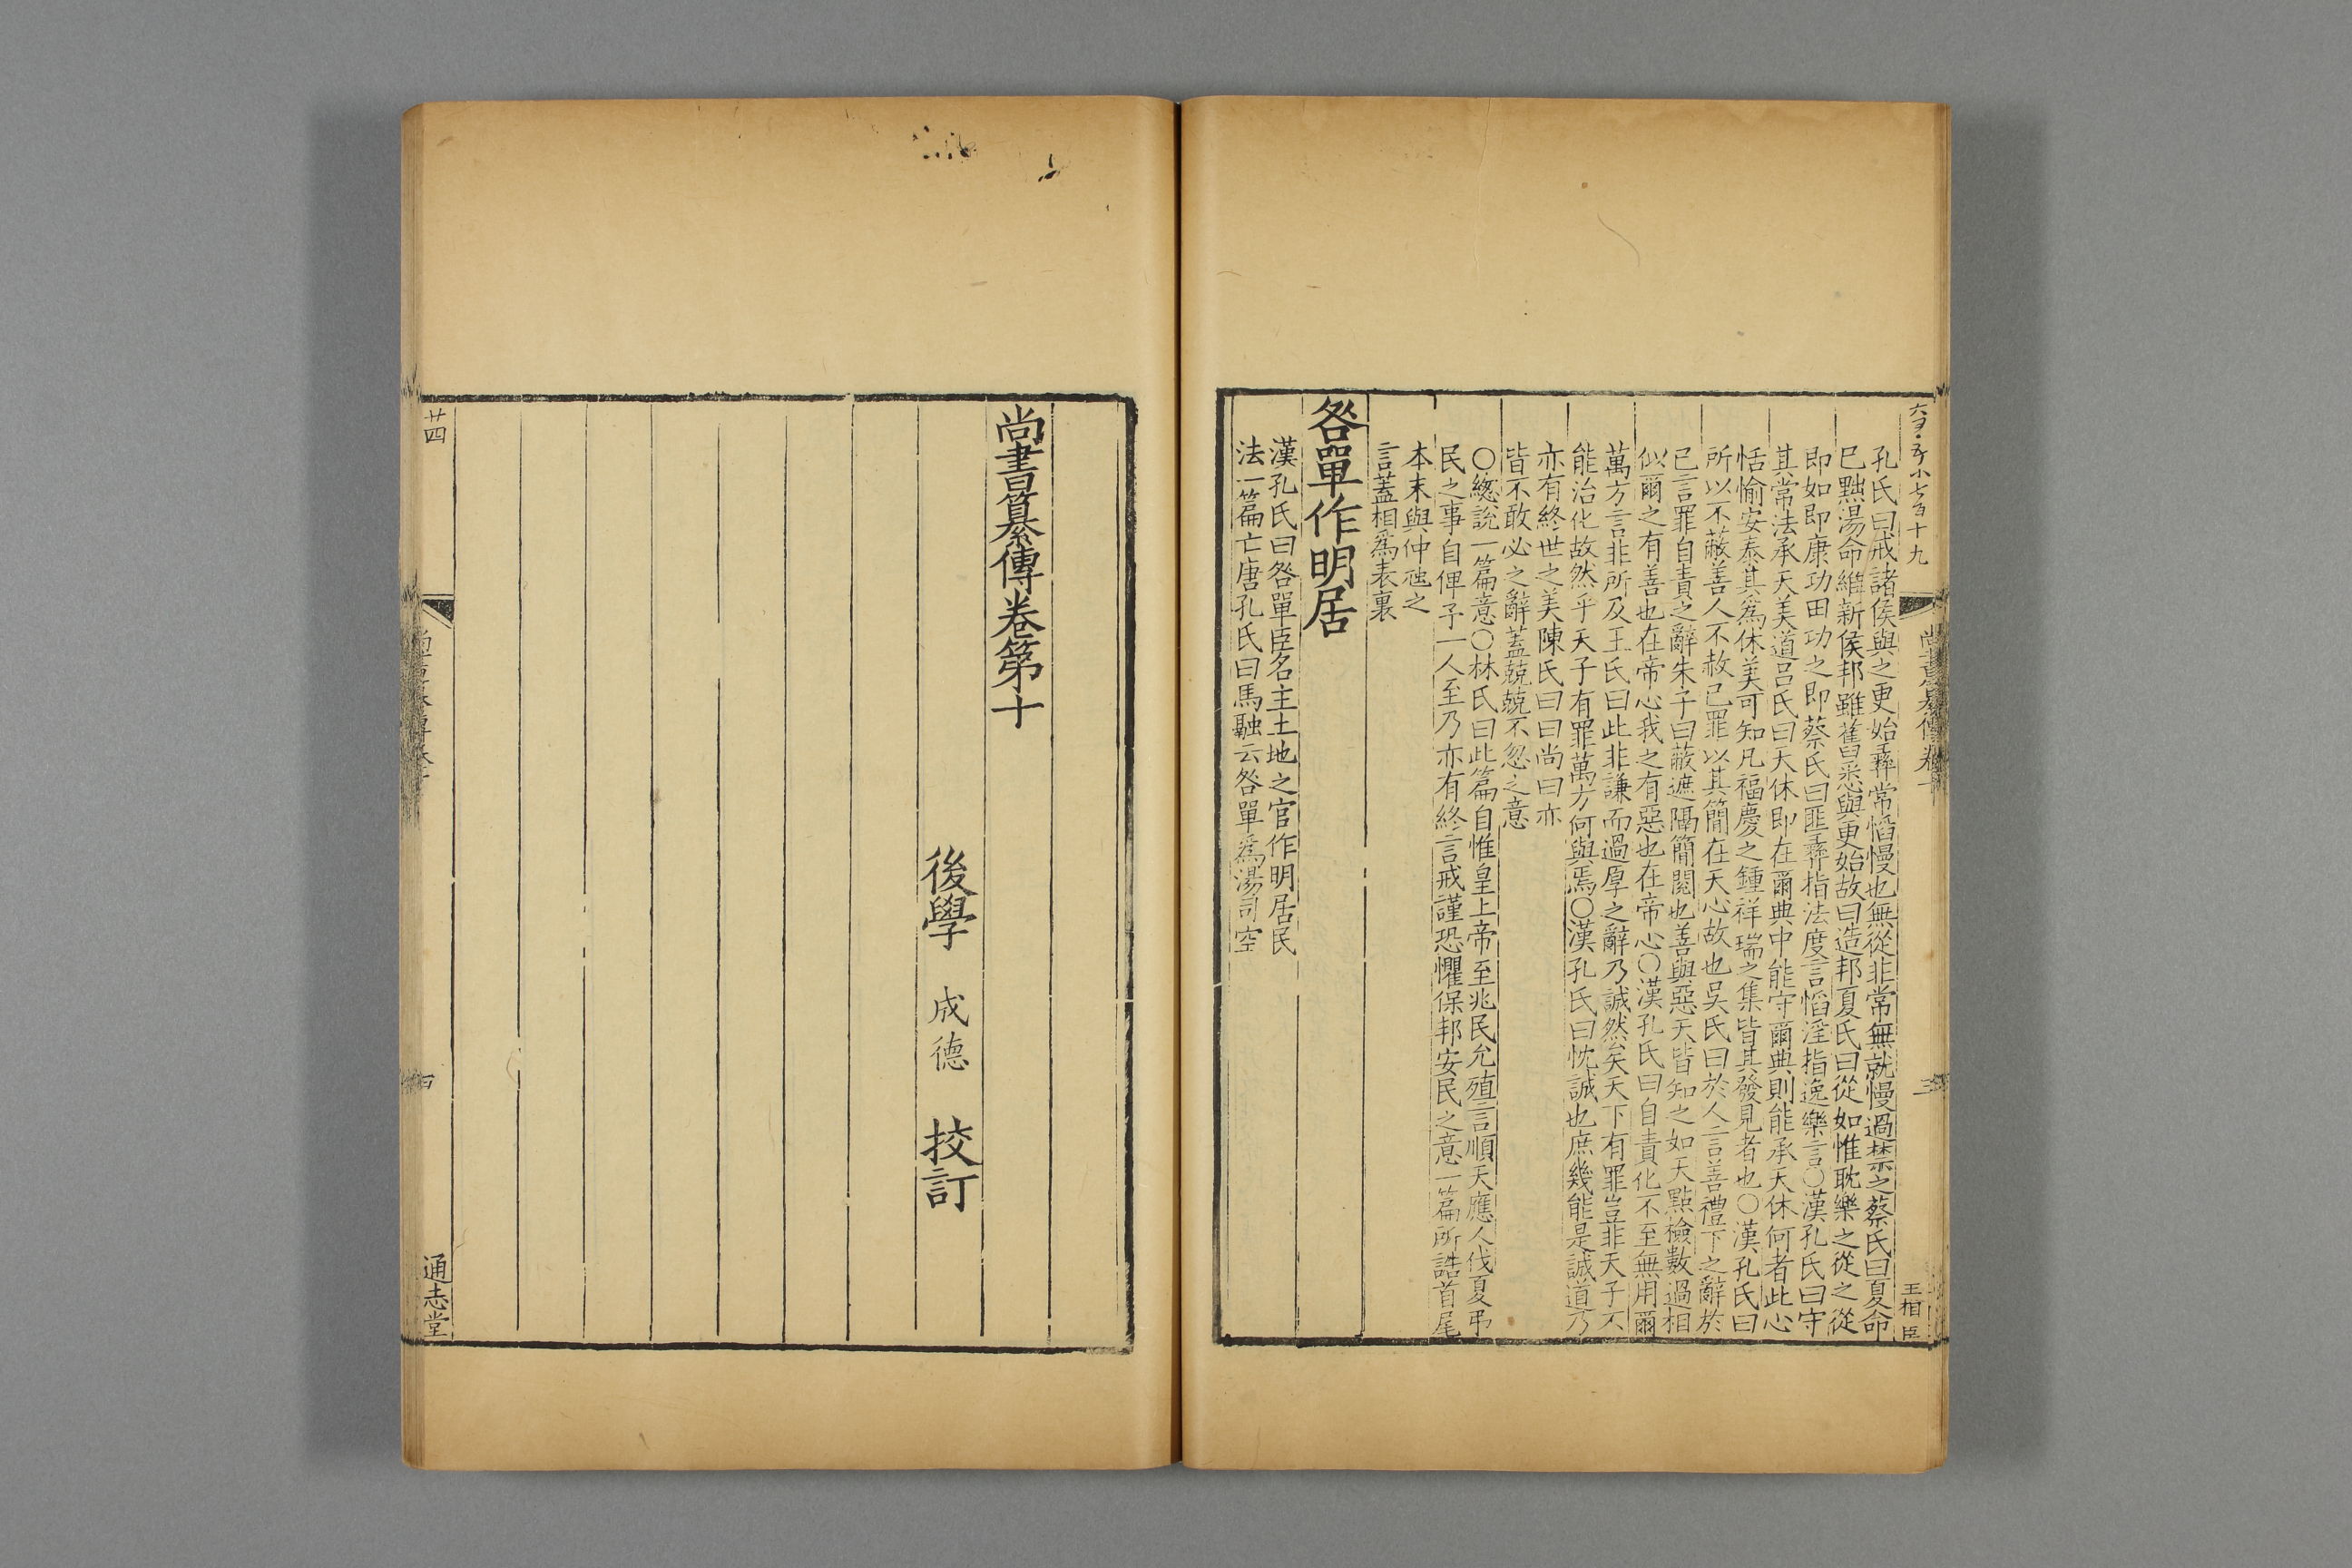 孔氏曰戒諸侯與之更始彞常慆慢也無從非常無就慢過禁之蔡氏曰夏命
已黜湯命維新侯邦雖舊悉與更始故曰造邦夏氏曰從如惟耽樂之從之從
即如即康功田功之即蔡氏曰匪彞指法度言慆淫指逸樂言○漢孔氏曰守
其常法承天美道呂氏曰天休即在爾典中能守爾典則能承天休何者此心
恬愉安泰其爲休美可知凡福慶之鍾祥瑞之集皆其發見者也○漢孔氏曰
所以不蔽善人不赦已罪以其簡在天心故也吳氏曰於人言善禮下之辭於
已言罪自責之辭朱子曰蔽遮隔簡閱也善與惡天皆知之如天點檢數過相
似爾之有善也在帝心我之有惡也在帝心○漢孔氏曰自責化不至無用爾
萬方言非所及王氏曰此非謙而過厚之辭乃誠然矣天下有罪豈非天子不
能治化故然乎天子有罪萬方何與焉○漢孔氏曰忱誠也庶幾能是誠道乃
亦有終世之美陳氏曰曰尚曰亦
皆不敢必之辭蓋兢兢不忽之意
○緫說一篇意○林氏曰此篇自惟皇上帝至兆民允殖言順天應人伐夏弔
民之事自俾予一人至乃亦有終言戒謹恐懼保邦安民之意一篇所誥首尾
本末與仲虺之
言蓋相爲表裏
咎單作明居
漢孔氏曰咎單臣名主土地之官作明居民
法一篇亡唐孔氏曰馬融云咎單爲湯司空
尚書纂傳卷十
三
王相臣
尚書纂傳卷第十
後學 成德 挍訂
廿四
通志堂